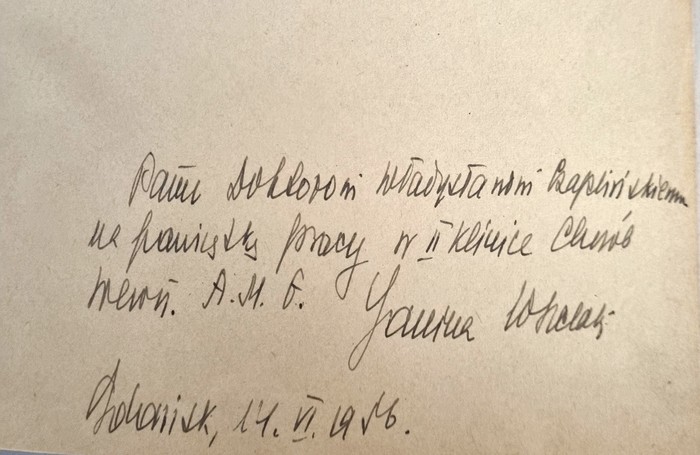 Panu Doktorowi Władysławowi Czaplińskiemu
na pamiątkę pracy w II Klinice Chorób
Wewn. A.M.G.
Janina
Gdańsk, 14. VI. 1956.